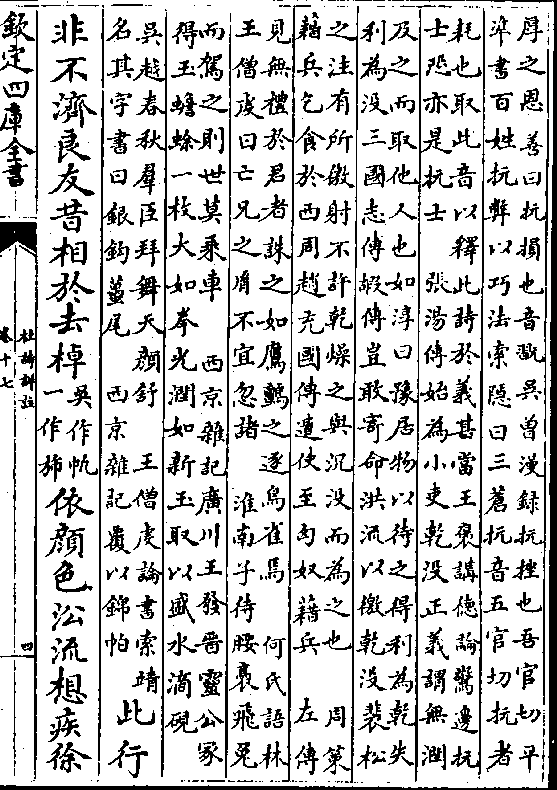 厚之恩善曰抏損也音翫吳曽漫録抏挫也吾官切平
凖書百姓抏弊以巧法索隠曰三蒼抏音五官切抏者
耗也取此音以釋此詩於義甚當王褒講徳論驚邊抏
士恐亦是抏士　張湯傳始為小吏乾没正義謂無潤
及之而取他人也如淳曰豫居物以待之得利為乾失
利為没三國志傳嘏傳豈敢寄命洪流以徼乾没裴松
之注有所徼射不許乾燥之與沉没而為之也　周策
藉兵乞食於西周趙充國傳遣使至匈奴藉兵　左傳
見無禮於君者誅之如鷹鸇之逐鳥雀焉　何氏語林
王僧䖍曰亡兄之𦙍不宜忽諸　淮南子待腰褭飛兎
而駕之則世莫乗車　西京雜記廣川王發晉靈公冢
得玉蟾蜍一枚大如拳光潤如新玉取以盛水滴硯
吳越春秋羣臣拜舞天顔舒　王僧䖍論書索靖
名其字書曰銀鈎蠆尾　西京雜記覆以錦帕　此行
非不濟良友昔相於去棹吳作帆一作斾依顔色㳂流想疾徐
欽定四庫全書
杜詩詳註
卷十七
四